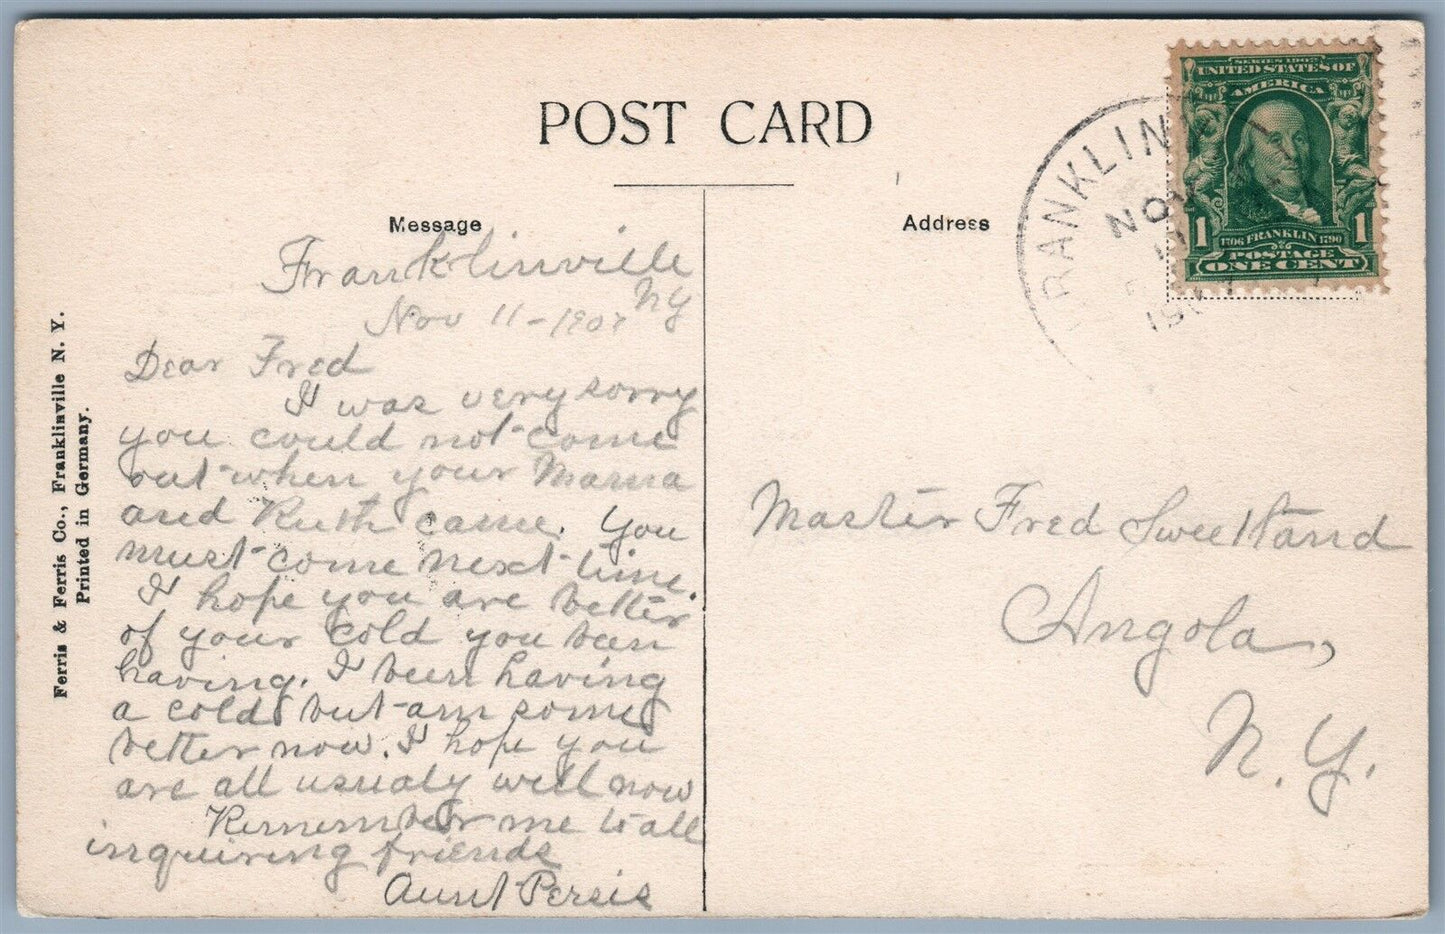 POST CARD
Message
Address
Franklinville
NY
Nov 11-1907
Dear Fred
I was very sorry
you could not come
out when your Mama
and Ruth came. You
must come next time.
I hope you are better
of your cold you been
having. I been having
a cold but am some
better now. I hope you
are all usualy well now
Remember me to all
inquiring friends
Aunt Persis
Master Fred Sweetland
Angola,
N. Y.
Ferris & Ferris Co., Franklinville N. Y.
Printed in Germany.
FRANKLIN
NOV
11
SERIES 1902
UNITED STATES OF
AMERICA
1 1706 FRANKLIN 1790 1
POSTAGE
ONE CENT